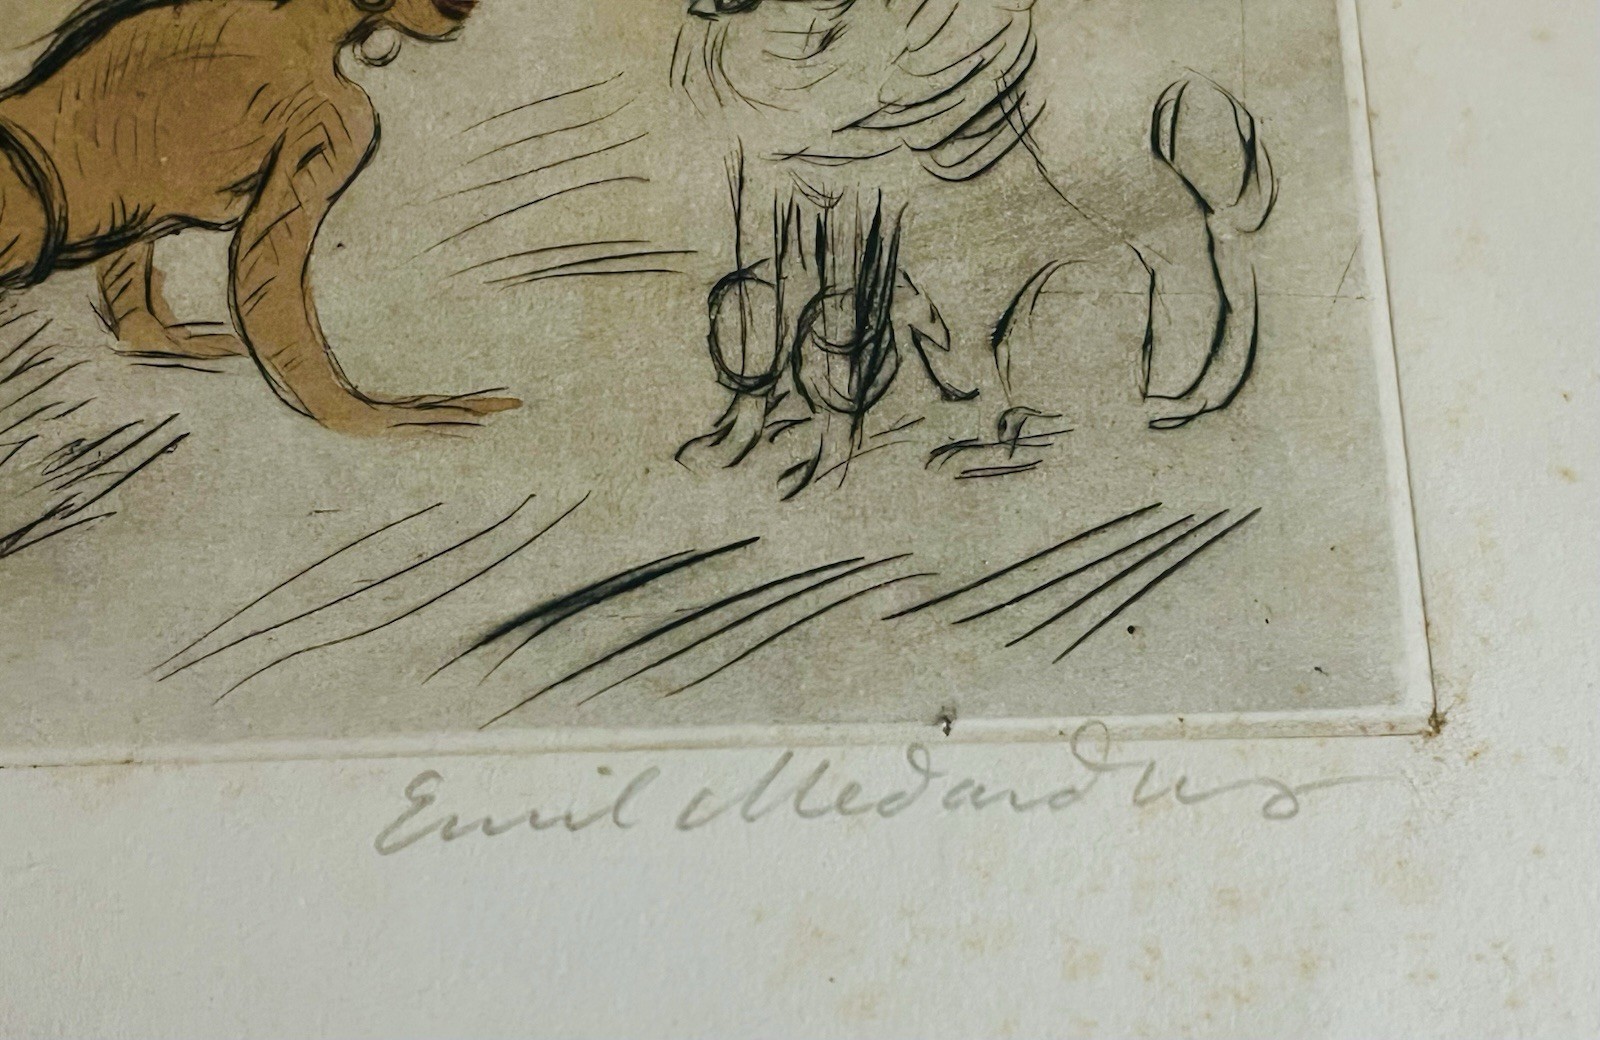 Emil Medardus